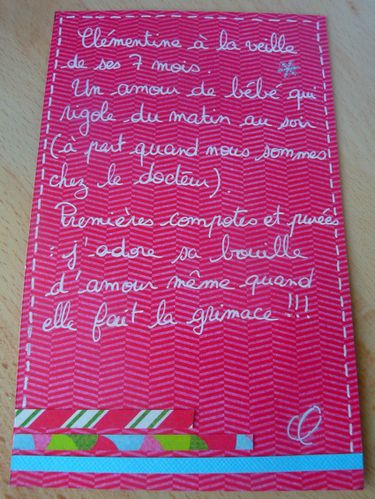 Clémentine à la veille
de ses 7 mois.
Un amour de bébé qui
rigole du matin au soir
(à part quand nous sommes
chez le docteur).
Premières compotes et purées
: j'adore sa bouille
d'amour même quand
elle fait la grimace !!!